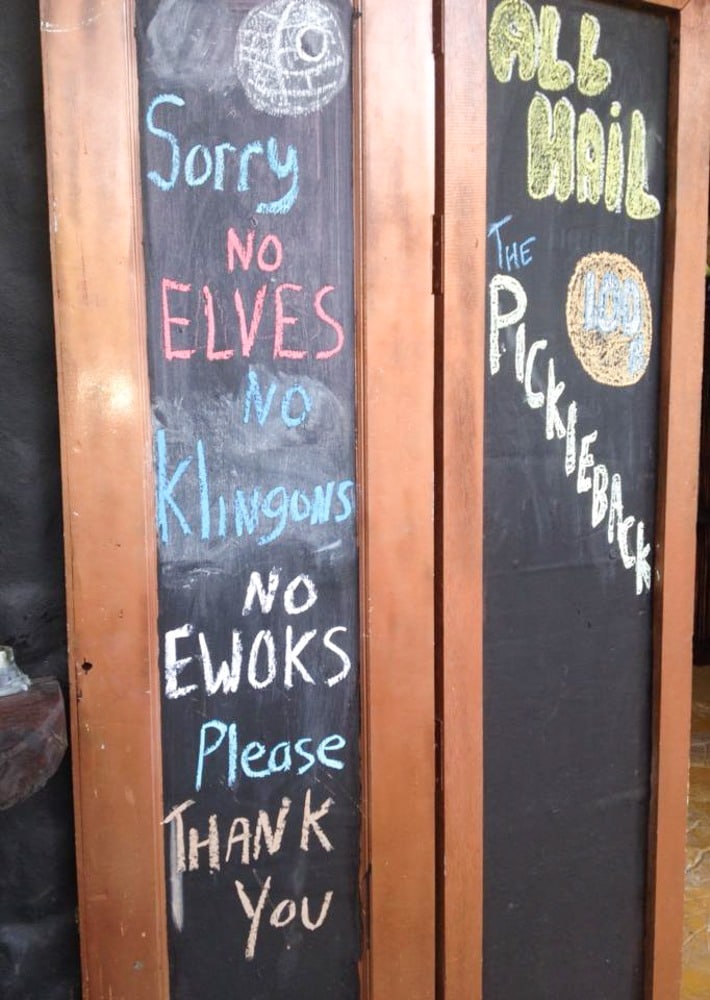 Sorry
NO
ELVES
NO
Klingons
NO
EWOKS
Please
THANK
You
ALL
HAiL
THE
PICKLEBACK